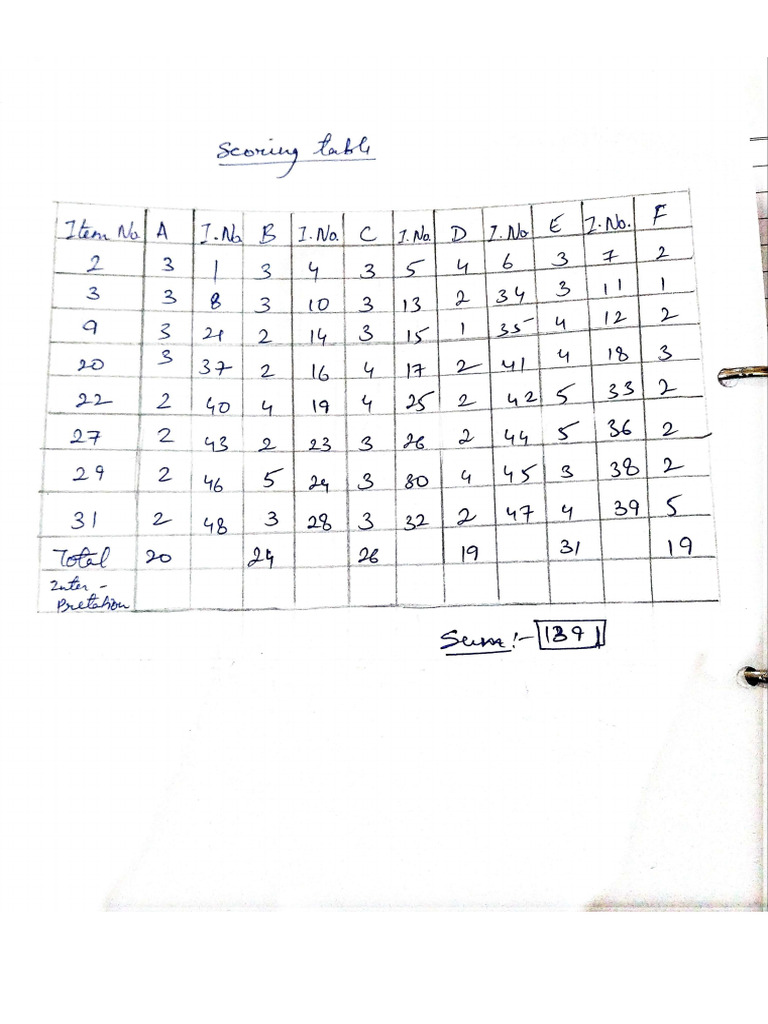 Scoring table
Item No. A I.No. B I.No. C I.No. D I.No E I.No. F
2 3 1 3 4 3 5 4 6 3 7 2
3 3 8 3 10 3 13 2 34 3 11 1
9 3 21 2 14 3 15 1 35 4 12 2
20 3 37 2 16 4 17 2 41 4 18 3
22 2 40 4 19 4 25 2 42 5 33 2
27 2 43 2 23 3 26 2 44 5 36 2
29 2 46 5 24 3 30 4 45 3 38 2
31 2 48 3 28 3 32 2 47 4 39 5
Total 20 24 26 19 31 19
Inter -
pretation
Sum :- 139